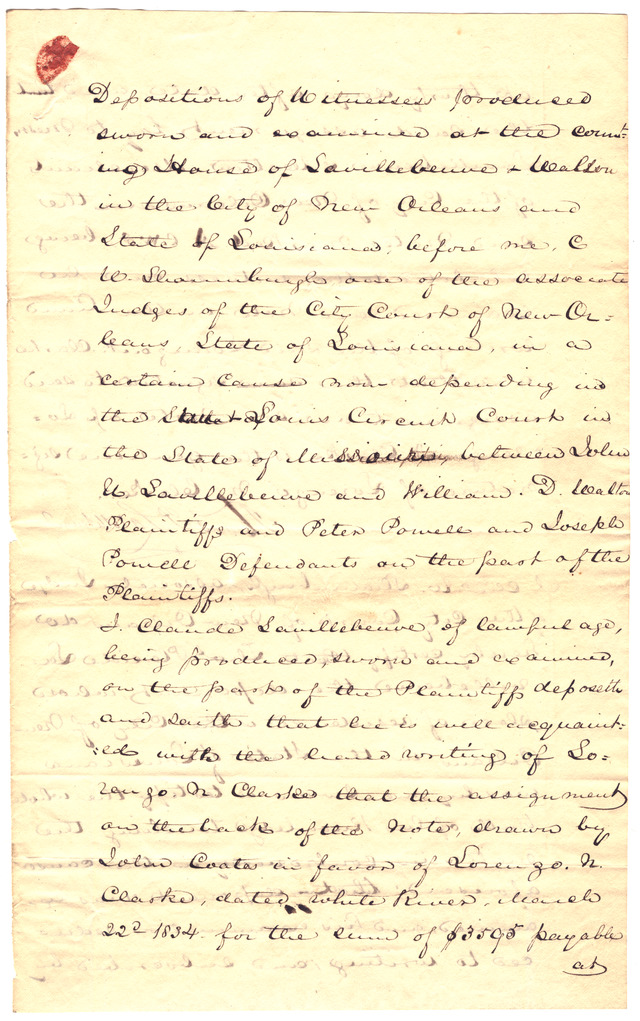 Depositions of Witnesses produced
sworn and examined at the count=
ing House of Lavillebeuve & Walton
in the City of New Orleans and
State of Louisiana, before me, C
W Shaumburgh one of the associate
Judges of the City Court of New Or=
leans, State of Louisiana, in a
certain cause now depending in
the Louis Circuit Court in
the State of Missouri, between John
U Lavillebeuve and William. D. Walton
Plaintiffs and Peter Powell and Joseph
Powell Defendants on the part of the
Plaintiffs.
J. Claude Lavillebeuve of lawful age,
being produced, sworn and examined,
on the part of the Plaintiffs deposeth
and saith that he is well acquaint=
=ed with the hand writing of Lo=
renzo N Clarke that the assignment
on the back of the Note, drawn by
John Coats in favor of Lorenzo. N.
Clarke, dated White River, March
22d 1834. for the sum of $3595 payable
at